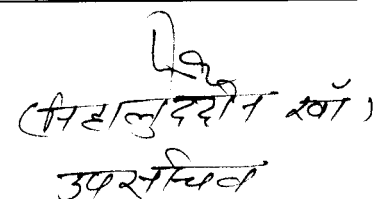 (निहालुद्दीन खाँ)
उपसचिव